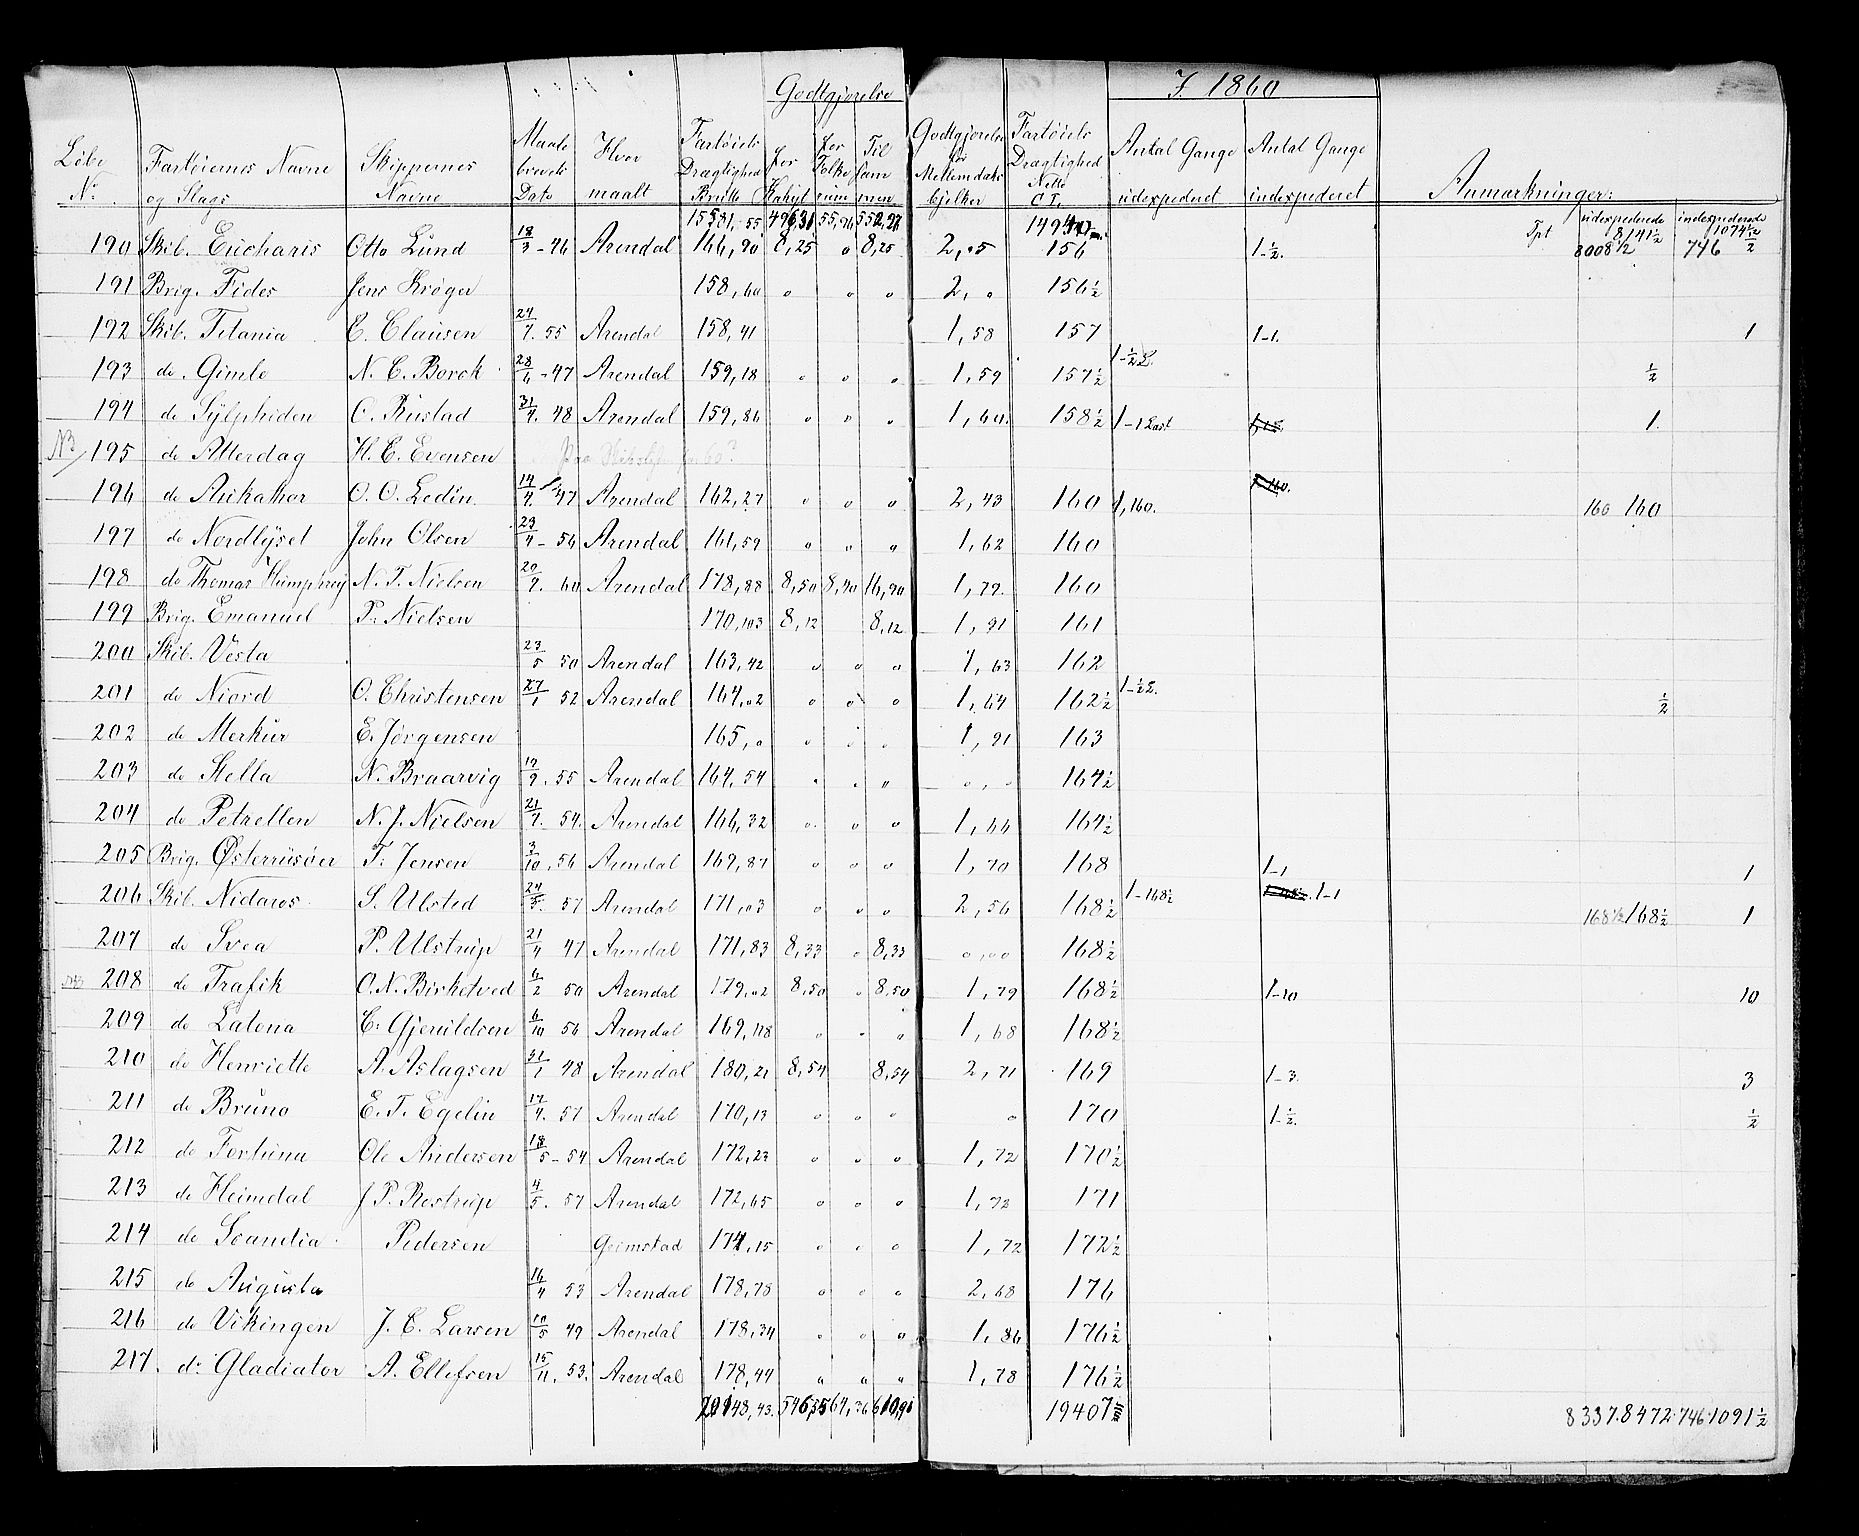 Godtgjørelse
I. 1860
Løbe No. Fartøiernes Navne og Slags Skippernes Navne Maalebrevets Dato Hvor maalt Fartøiets Drægtighed Brutto for Kahyt for Folkerum Tilsammen Godtgjørelse for Mellemdæksbjelker Fartøiets Drægtighed Netto C.L. Antal Gange udexpederet Antal Gange indexpederet Anmærkninger:
udexpederede indexpederede
15581,55 496,31 55,96 552,27 Tpt 8141½ 1074½
190 Skib. Eucharis Otto Lund 18/3-46 Arendal 166,90 8,25 " 8,25 2,05 156 1-½. 8008½ 746 ½
191 Brig. Fides Jens Krøger 158,60 " " " 2," 156½
192 Skib. Titania C. Clausen 24/7. 55 Arendal 158,41 1,58 157 1-1. 1
193 do. Gimle N. C. Borck 28/6-47 Arendal 159,18 " " " 1,59 157½ 1-½L. ½
194 do Sylphiden C. Rustad 31/7. 48 Arendal 159,86 " " " 1,60. 158½ 1-1 Last 1.
NB 195 do Atterdag H. C. Evensen
196 do Aukathor O. O. Ledin. 14/7. 47 Arendal 162,27 " " " 2,43 160 1,160. 160 160
197 do Nordlyset John Olsen 23/4-56 Arendal 161,59 " " " 1,62 160
198 do Thomas Humphrey N. T. Nielsen 20/7. 60 Arendal 178,88 8,50 8,40 16,90 1,79. 160
199 Brig. Emanuel P. Nielsen 170,103 8,12 8,12 1,91 161
200 Skib. Vesta 23/5 50 Arendal 163,42 " " " 1,63 162
201 do Niord O. Christensen 27/1 52 Arendal 164,02 " " " 1,64 162½ 1-½L. ½
202 do Merkur E. Jørgensen 165," " " " 1,91 163
203 do Stella N. Braarvig 19/9. 55 Arendal 164,54 " " " "," 164½
204 do Petrellen N. J. Nielsen 21/7. 54. Arendal 166,32 " " " 1,66 164½
205 Brig. Østerrisøer T. Jensen 3/10. 56 Arendal 169,87 " " " 1,70 168 1-1 1
206 Skib. Nidaros S. Ulsted 24/5. 57 Arendal 171,03 " " " 2,56 168½ 1-168½ 1-1 168½ 168½ 1
207 do Svea P. Ulstrup 21/4 47 Arendal 171,83 8,33 " 8,33 ","" 168½
208 do Trafik O. N. Birketved 6/2 50 Arendal 179,02 8,50 " 8,50 1,79 168½ 1-10 10
209 do Latona C. Gjeruldsen 6/10 56 Arendal 169,118 " " " 1,68 168½
210 do Henriette A. Aslagsen 31/1 48 Arendal 180,21 8,54 8,54 2,71 169 1-3. 3
211 do Bruno E. T. Egelin 17/4. 57 Arendal 170,13 " " " " 170 1-½. ½
212 do Fortuna Ole Andersen 18/5-54 Arendal 172,23 " " " 1,72 170½
213 do Heimdal J P. Rostrup 4/5. 57 Arendal 172,65 " " " 1,72 171
214 do Scandia Pedersen Grimstad 174,15 " " " 1,72 172½
215 do Augusta 16/4 53 Arendal 178,78 " " " 2,68 176
216 do Vikingen J. C. Larsen 10/5 49 Arendal 178,34 " " " 1,86 176½
217. do Gladiator A. Ellefsen 15/11. 53. Arendal 178,44 " " " 1,78 176½
20148,43. 546,55 64,36 610,91 19407½ 8337. 8472. 746. 1091½